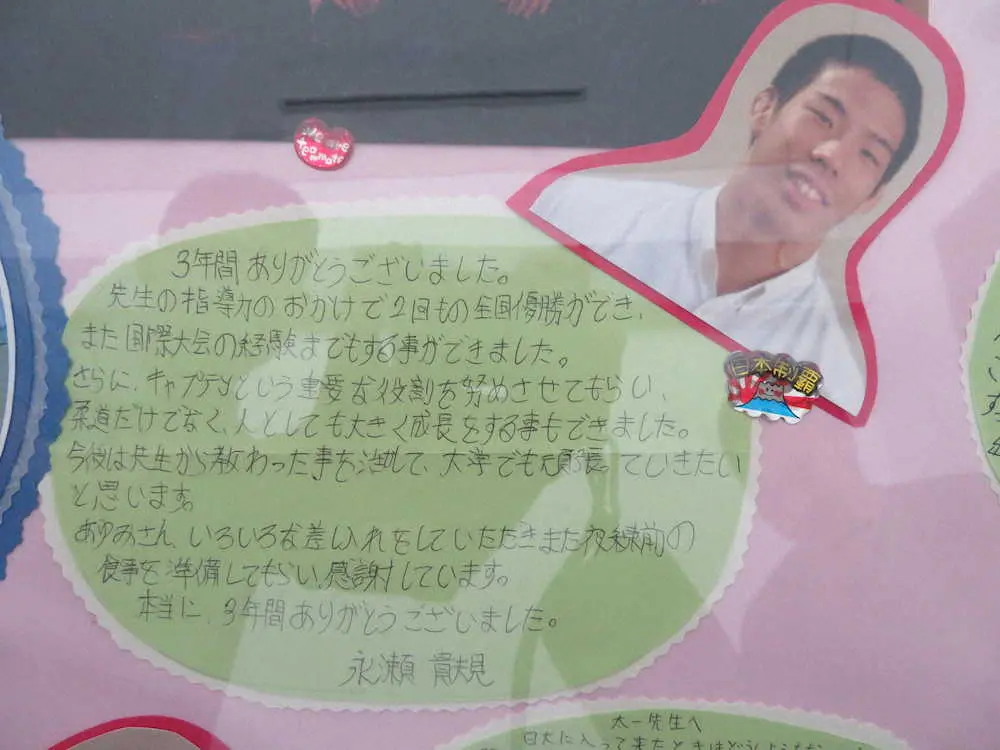 We are
teammate
日本制覇
3年間ありがとうございました。
先生の指導力のおかげで2回もの全国優勝ができ、
また国際大会の経験までもする事ができました。
さらに、キャプテンという重要な役割を努めさせてもらい、
柔道だけでなく、人としても大きく成長をする事もできました。
今後は先生から教わった事を活かして、大学でも頑張っていきたい
と思います。
あゆみさん、いろいろな差し入れをしていただきまた夜練前の
食事を準備してもらい、感謝しています。
本当に、3年間ありがとうございました。
永瀬 貴規
太一先生へ
日大に入って来たときは